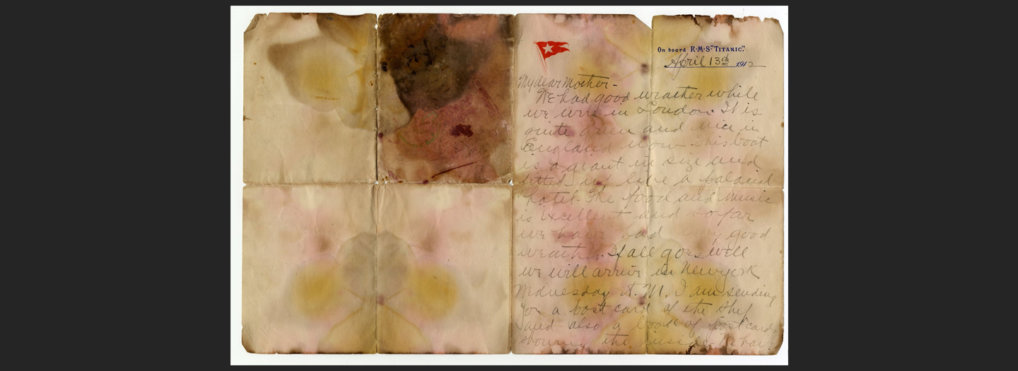 On board R·M·S "TITANIC."
April 13th 1912
My dear Mother-
We had good weather while
we were in London. It is
quite green and nice in
England now. This boat
is a giant in size and
fitted up like a palacial
hotel. The food and music
is excellent and so far
we have had very good
weather. If all goes well
we will arrive in New York
Wednesday A.M. I am sending
you a post card of the ship
and also a book of Postcards
showing the inside